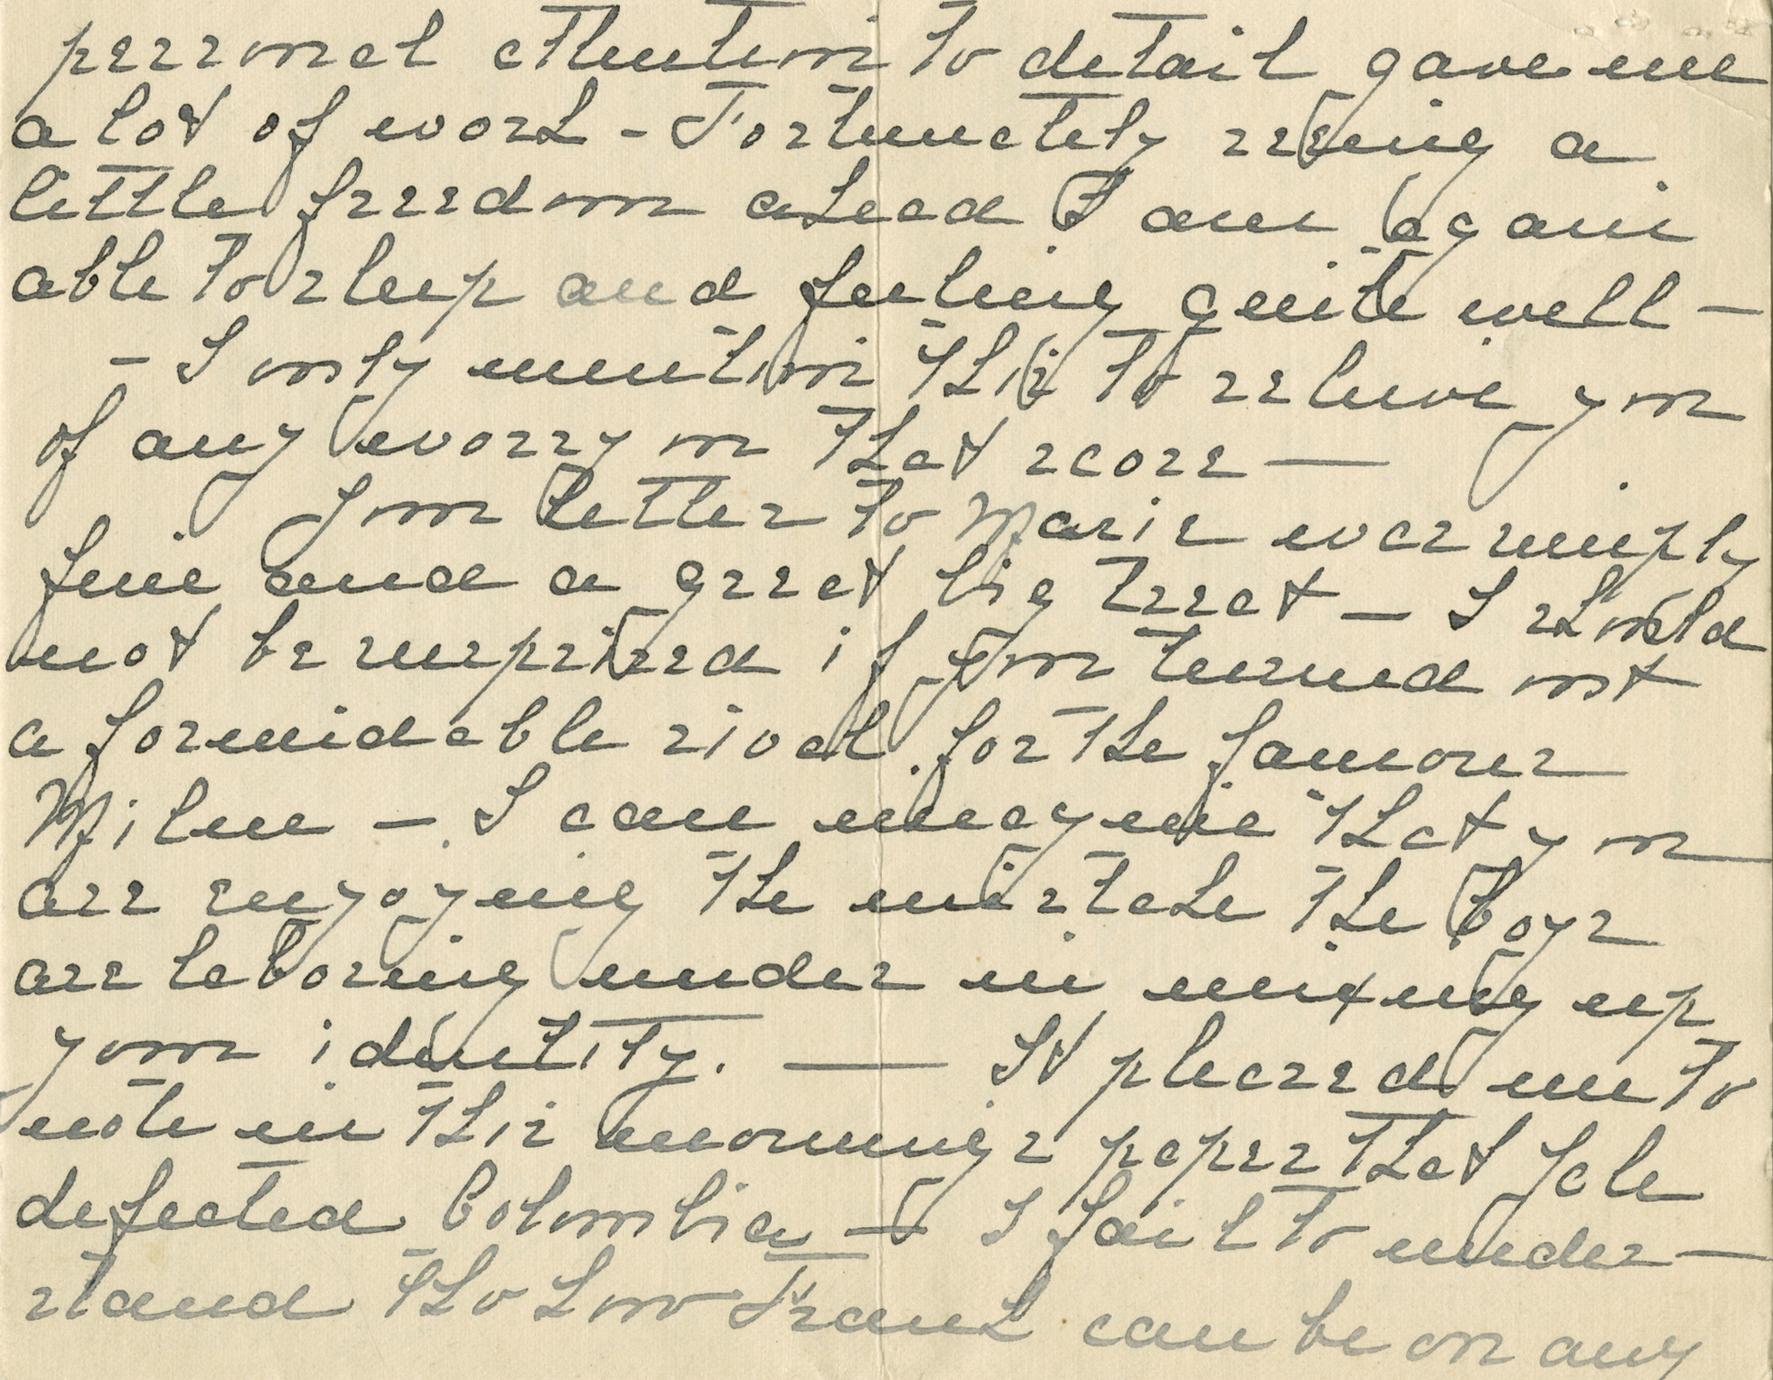 personal attention to detail gave me
a lot of work - Fortunately seeing a
little freedom ahead I am again
able to sleep and feeling quite well -
- I only mention this to relieve you
of any worry on that score -
Your letter to Marie was simply
fine and a great big treat - I should
not be surprised if you turned out
a formidable rival for the famous
Milne - I can imagine that you
are enjoying the mistake the boys
are laboring under in mixing up
your identity. — It pleased me to
note in this morning's paper that Yale
defeated Colombia - I fail to under-
stand tho how Frank can be on any